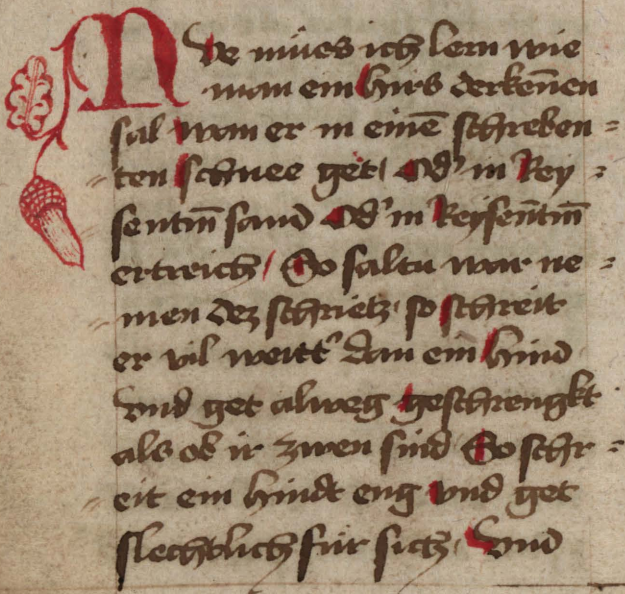 Nve mües ich lern wie
man ein hirs derkeñen
sal wan er in einē schreken=
ten schnee get / Od' in Rey=
sentm̄ sand Od' in Reysen̄tm̄
ertreich / So saltu war ne=
men dez schrietz · so schreit
er vil weitt' dan ein hind
vnd get alweg geschrengkt
als ob ir zwen sind So schr=
eit ein hindt eng vnd get
slechtlich für sich · Vnd